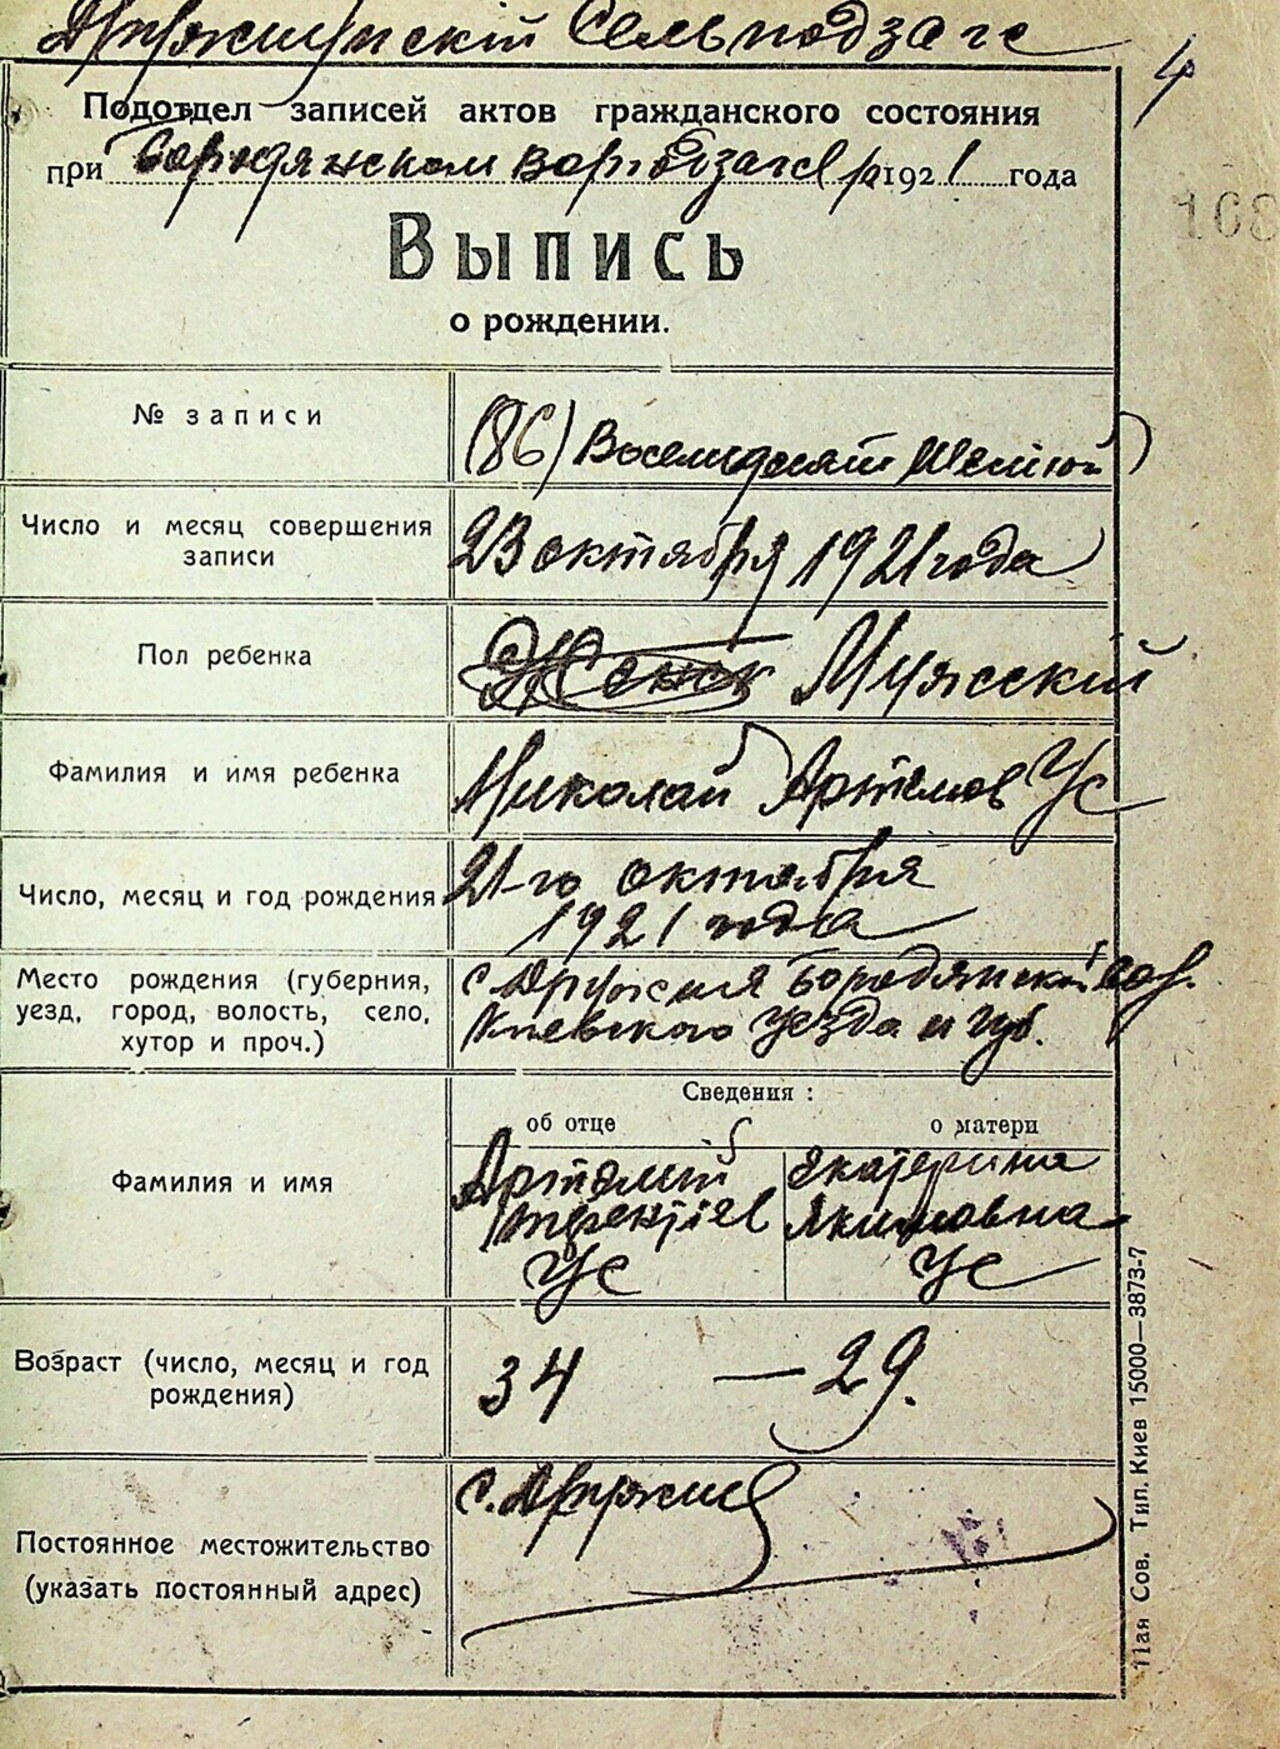 Дружнянскій Сельподзагс
4
Подотдел записей актов гражданского состояния
при Бородянском Волподзагсе на 1921 года
168
Выпись
о рождении.
№ записи
(86) Восемдесят Шестой
Число и месяц совершения
записи
23 октября 1921 года
Пол ребенка
Женск Мужеский
Фамилия и имя ребенка
Николай Артемов Ус
Число, месяц и год рождения
21-го октября
1921 года
Место рождения (губерния,
уезд, город, волость, село,
хутор и проч.)
с Дружня Бородянской вол.
Киевского уезда и губ.
Сведения:
об отце
о матери
Фамилия и имя
Артемий
Ус
Екатерина
Якимовна
Ус
Возраст (число, месяц и год
рождения)
34
— 29.
Постоянное местожительство
(указать постоянный адрес)
с. Дружня
11ая Сов. Тип. Киев 15000—3873-7